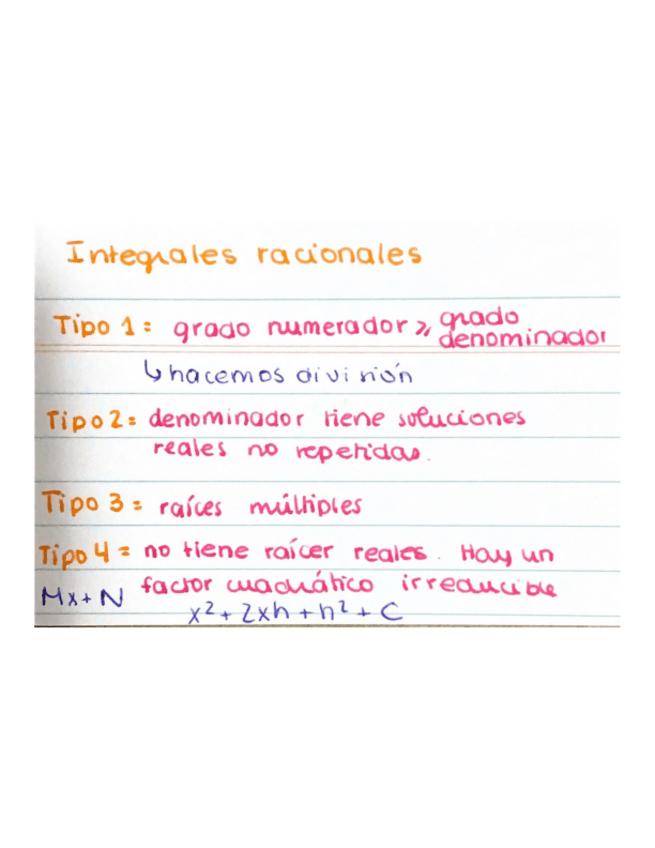 Integrales racionales
Tipo 1: grado numerador ≥ grado denominador
↳ hacemos división
Tipo 2: denominador tiene soluciones
reales no repetidas.
Tipo 3: raíces múltiples
Tipo 4: no tiene raíces reales. Hay un
Mx+N factor cuadrático irreducible
x² + 2xh + h² + C